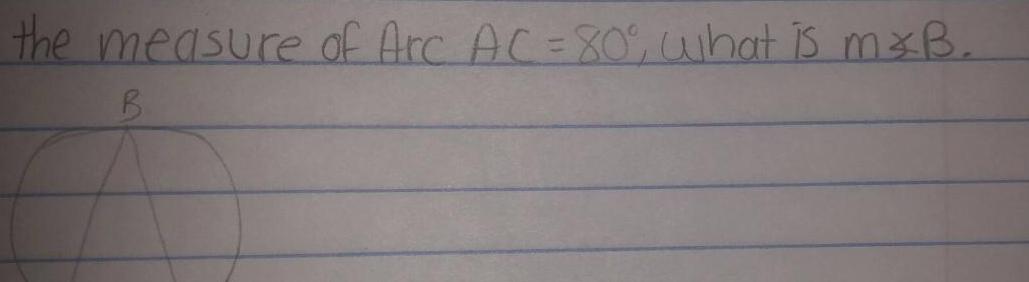 the measure of Arc AC = 80°, what is m∡B.
B